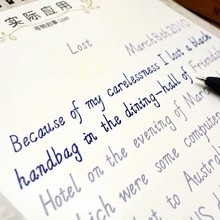 实际应用
Lost
Lost
March 8th 2010
Because of my carelessness I lost a black
handbag in the dining-hall of Friends
Hotel on the evening of Mar
which were some computer
to Australia